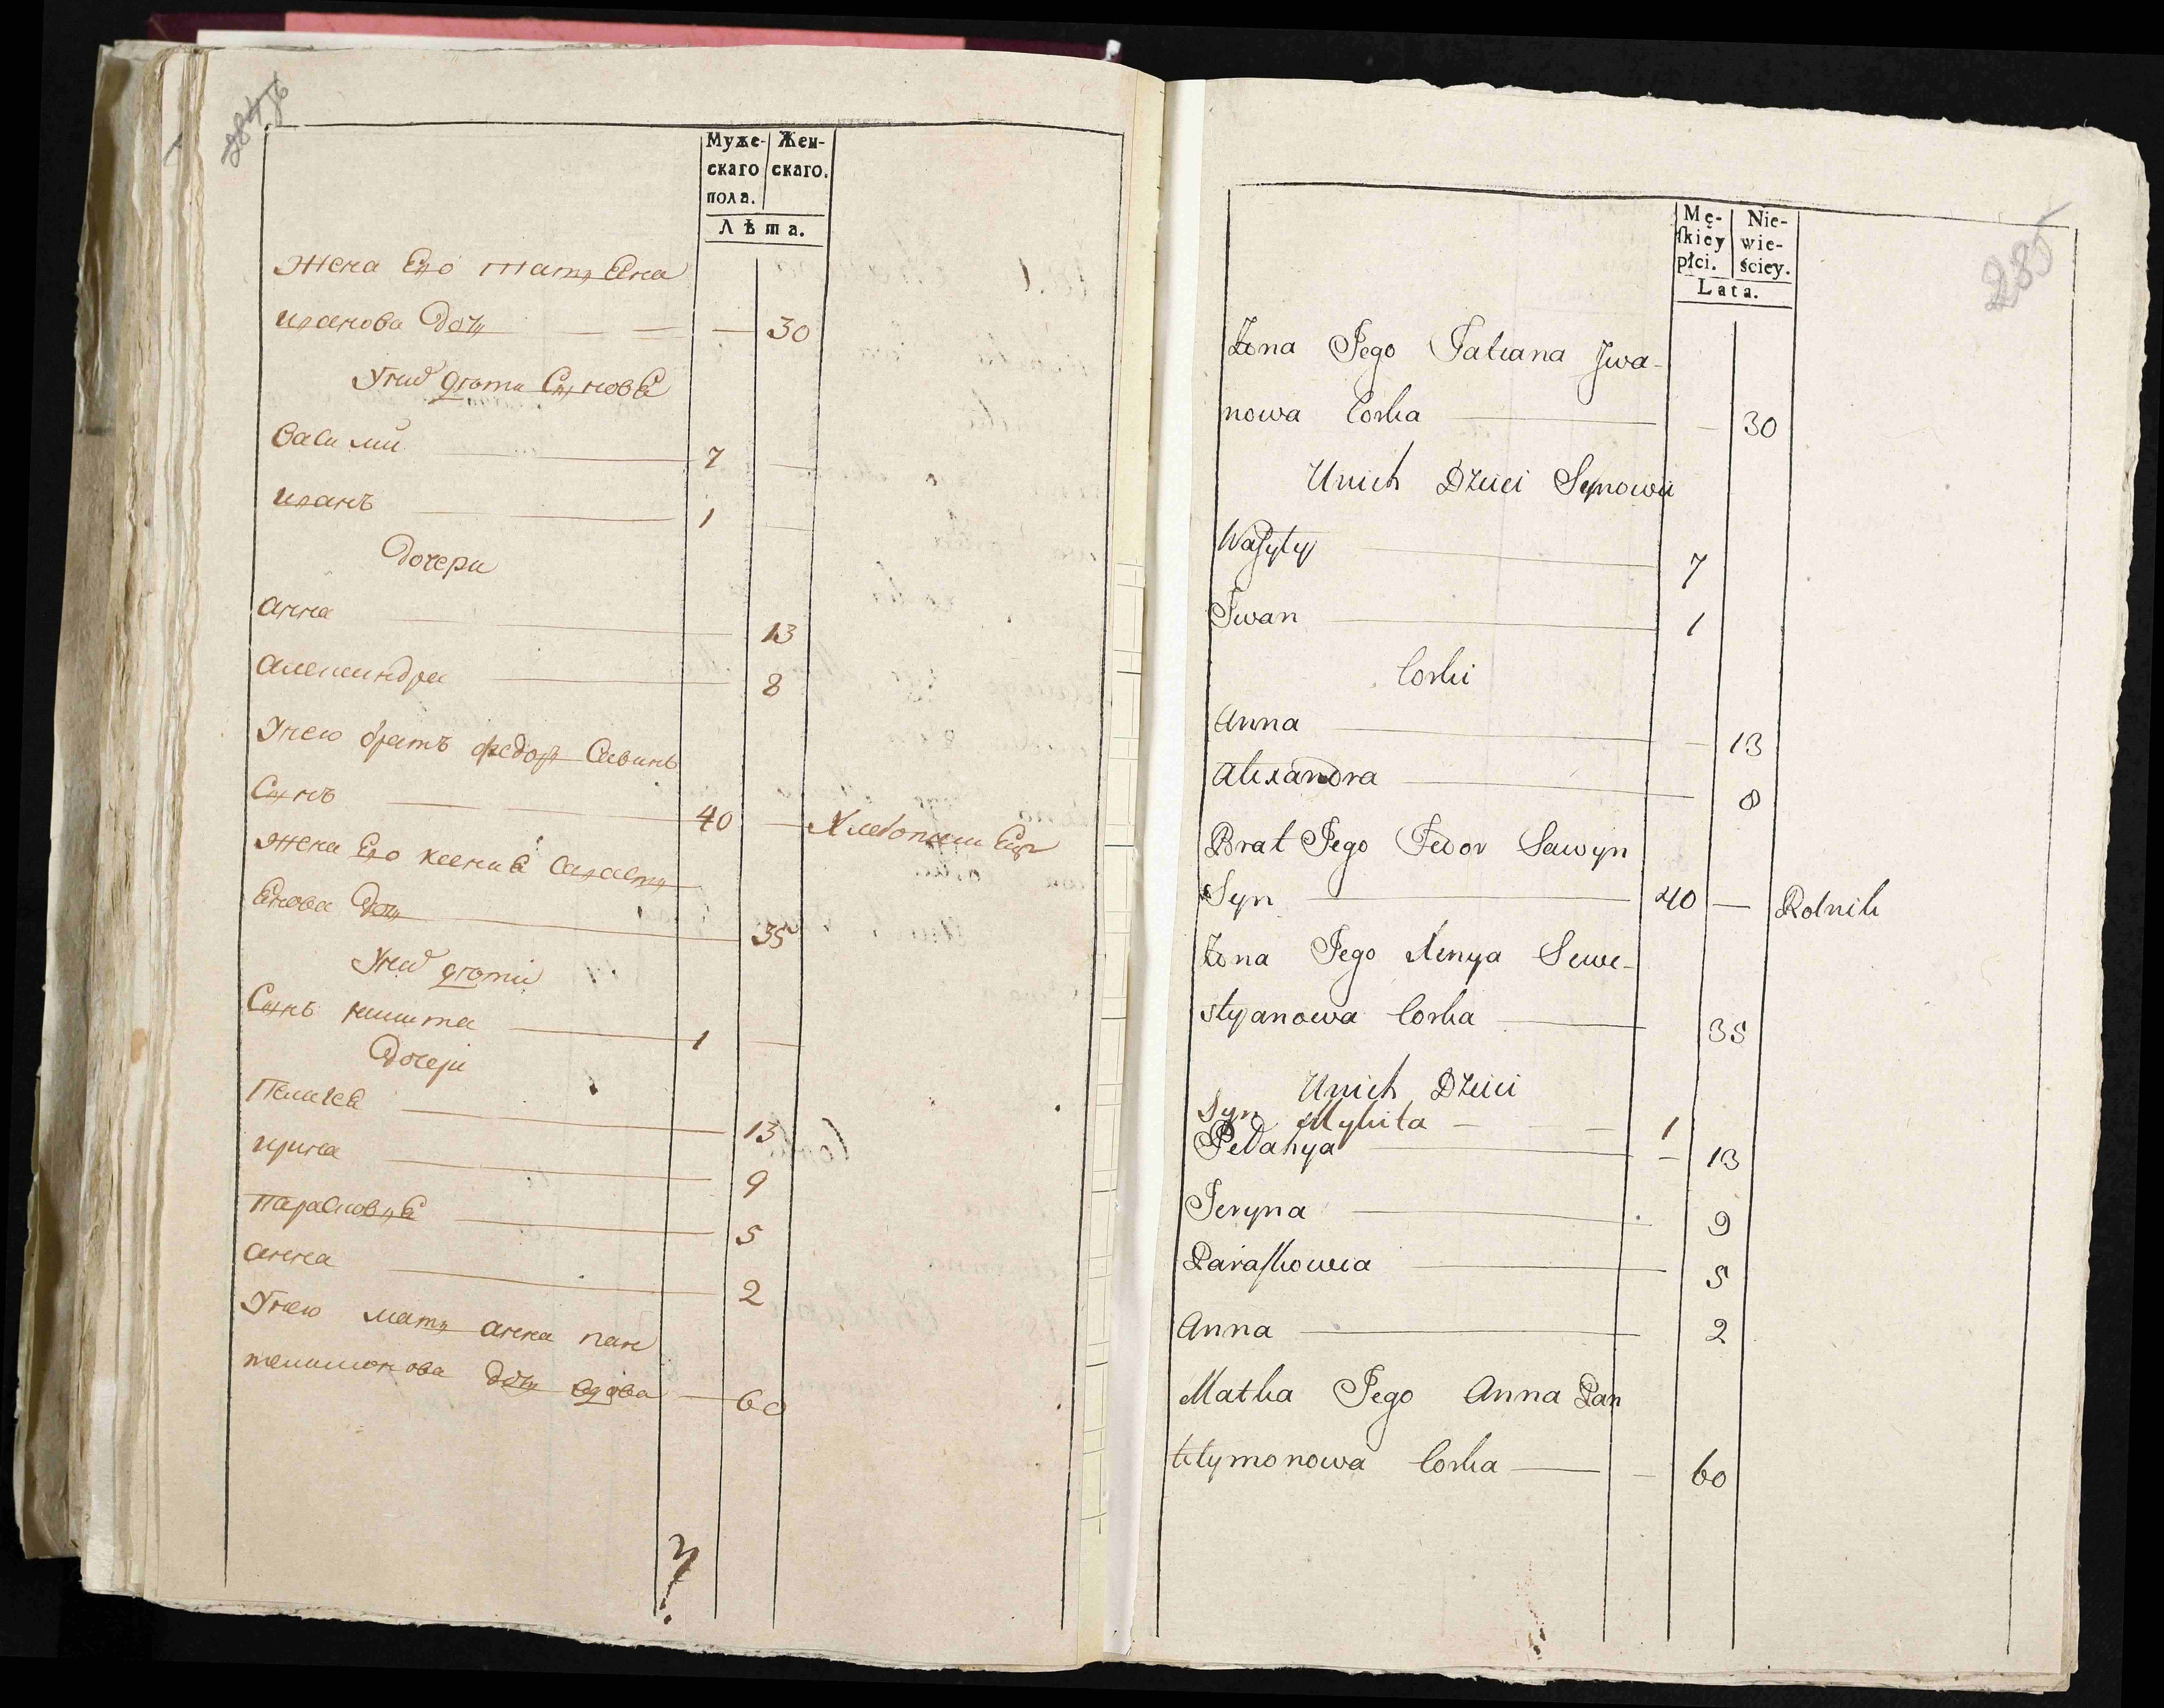 Муже- Жен-
скаго скаго.
пола.
Лѣта.
жена Его татъѣна
иванова дочъ — — 30
Уних дѣти Сыновѣ
Василий — 7 —
иванъ — 1 —
Дочери
анна — 13
александра — 8
Унего братъ федоръ Савинъ
Сынъ — 40 — Хлебопашецъ
жена Его ксениѣ Савасты
ѣнова дочъ — 35
Уних дѣти
Сынъ никита — 1 —
Дочери
Пелагеѣ — 13
ирина — 9
парасковъѣ — 5
анна — 2
Унего мать анна пан
телимонова дочъ вдова — 60
285
Mę- Nie-
ſkiéy wie-
płci. ściey.
Lata.
Żona Jego Tatiana Jwa-
nowa Corka — — 30
Unich Dzieci Synowie
Waſyly — 7
Jwan — 1
Corki
Anna — — 13
Alexandra — 8
Brat Jego Fedor Sawyn
Syn — 40 — Rolnik
Żona Jego Xenya Sewe-
styanowa Corka — 35
Unich Dzieci
Syn Mykita — — 1
Pelahya — — 13
Jeryna — 9
Paraſkowia — 5
Anna — 2
Matka Jego Anna Pan
telymonowa Corka — — 60